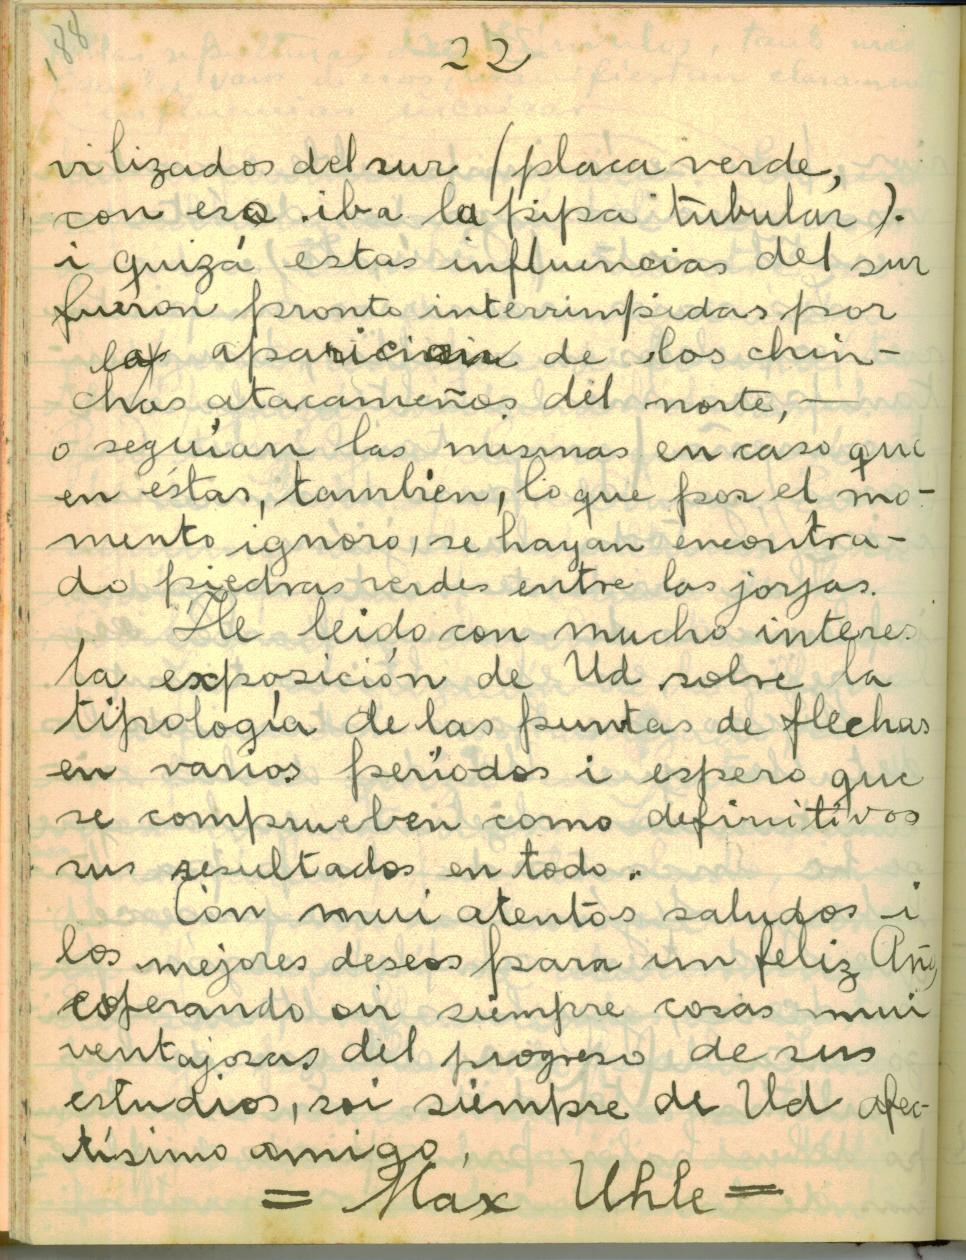 188
22
vilizados del sur (placa verde,
con esa iba la pipa tubular).
i quizá estas influencias del sur
fueron pronto interrimpidas por
la aparicion de los chin-
chas atacameños del norte, —
o seguían las mismas en caso que
en éstas, tambien, lo que por el mo-
mento ignoro, se hayan encontra-
do piedras verdes entre las joyas.
He leido con mucho interes
la exposición de Ud sobre la
tipología de las puntas de flechas
en varios períodos i espero que
se comprueben como definitivos
sus resultados en todo.
Con mui atentos saludos i
los mejores deseos para un feliz Año,
esperando oir siempre cosas mui
ventajosas del progreso de sus
estudios, soi siempre de Ud afec-
tísimo amigo,
= Max Uhle =